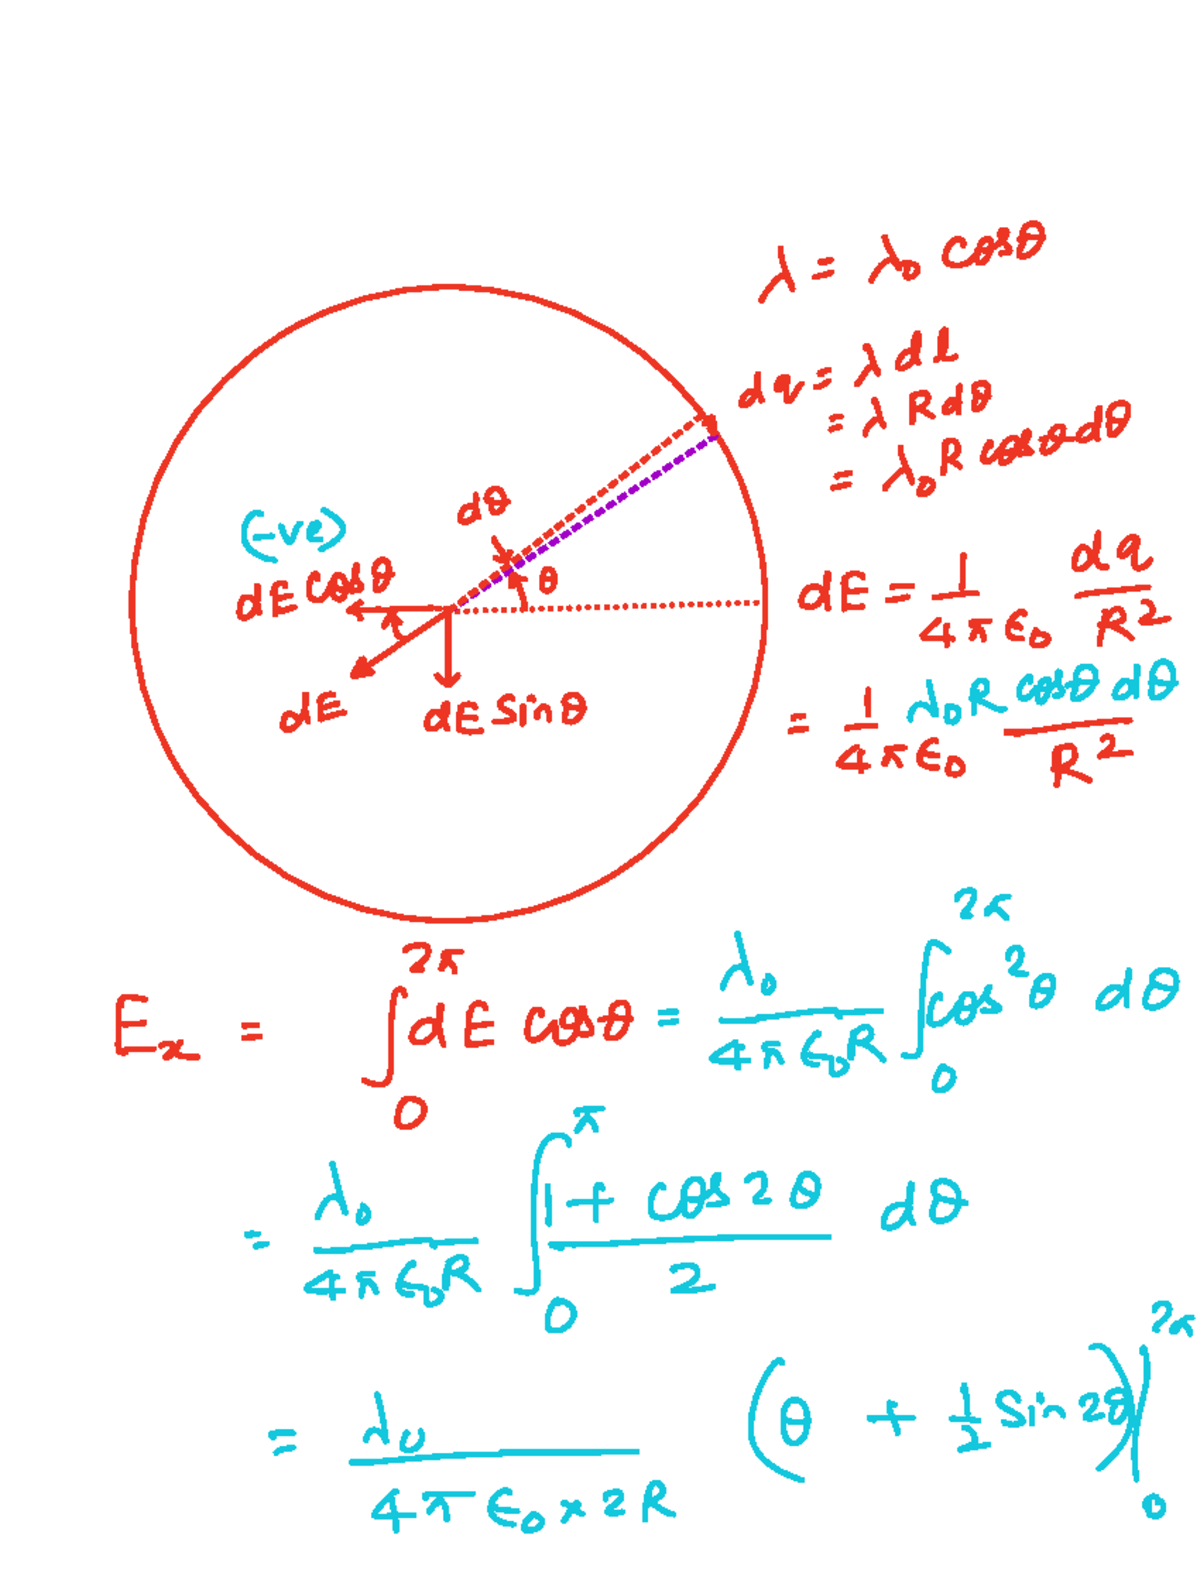 λ = λ₀ cosθ
dq = λ dl
= λ R dθ
= λ₀ R cosθ dθ
dθ
(-ve)
dE cosθ
θ
dE
dE Sinθ
dE = 1/(4πε₀) dq/R²
= 1/(4πε₀) λ₀ R cosθ dθ/R²
Eₓ = ∫₀^2π dE cosθ = λ₀/(4πε₀R) ∫₀^2π cos²θ dθ
= λ₀/(4πε₀R) ∫₀^π (1 + cos2θ)/2 dθ
= λ₀/(4πε₀ × 2R) (θ + 1/2 Sin2θ)|₀^2π